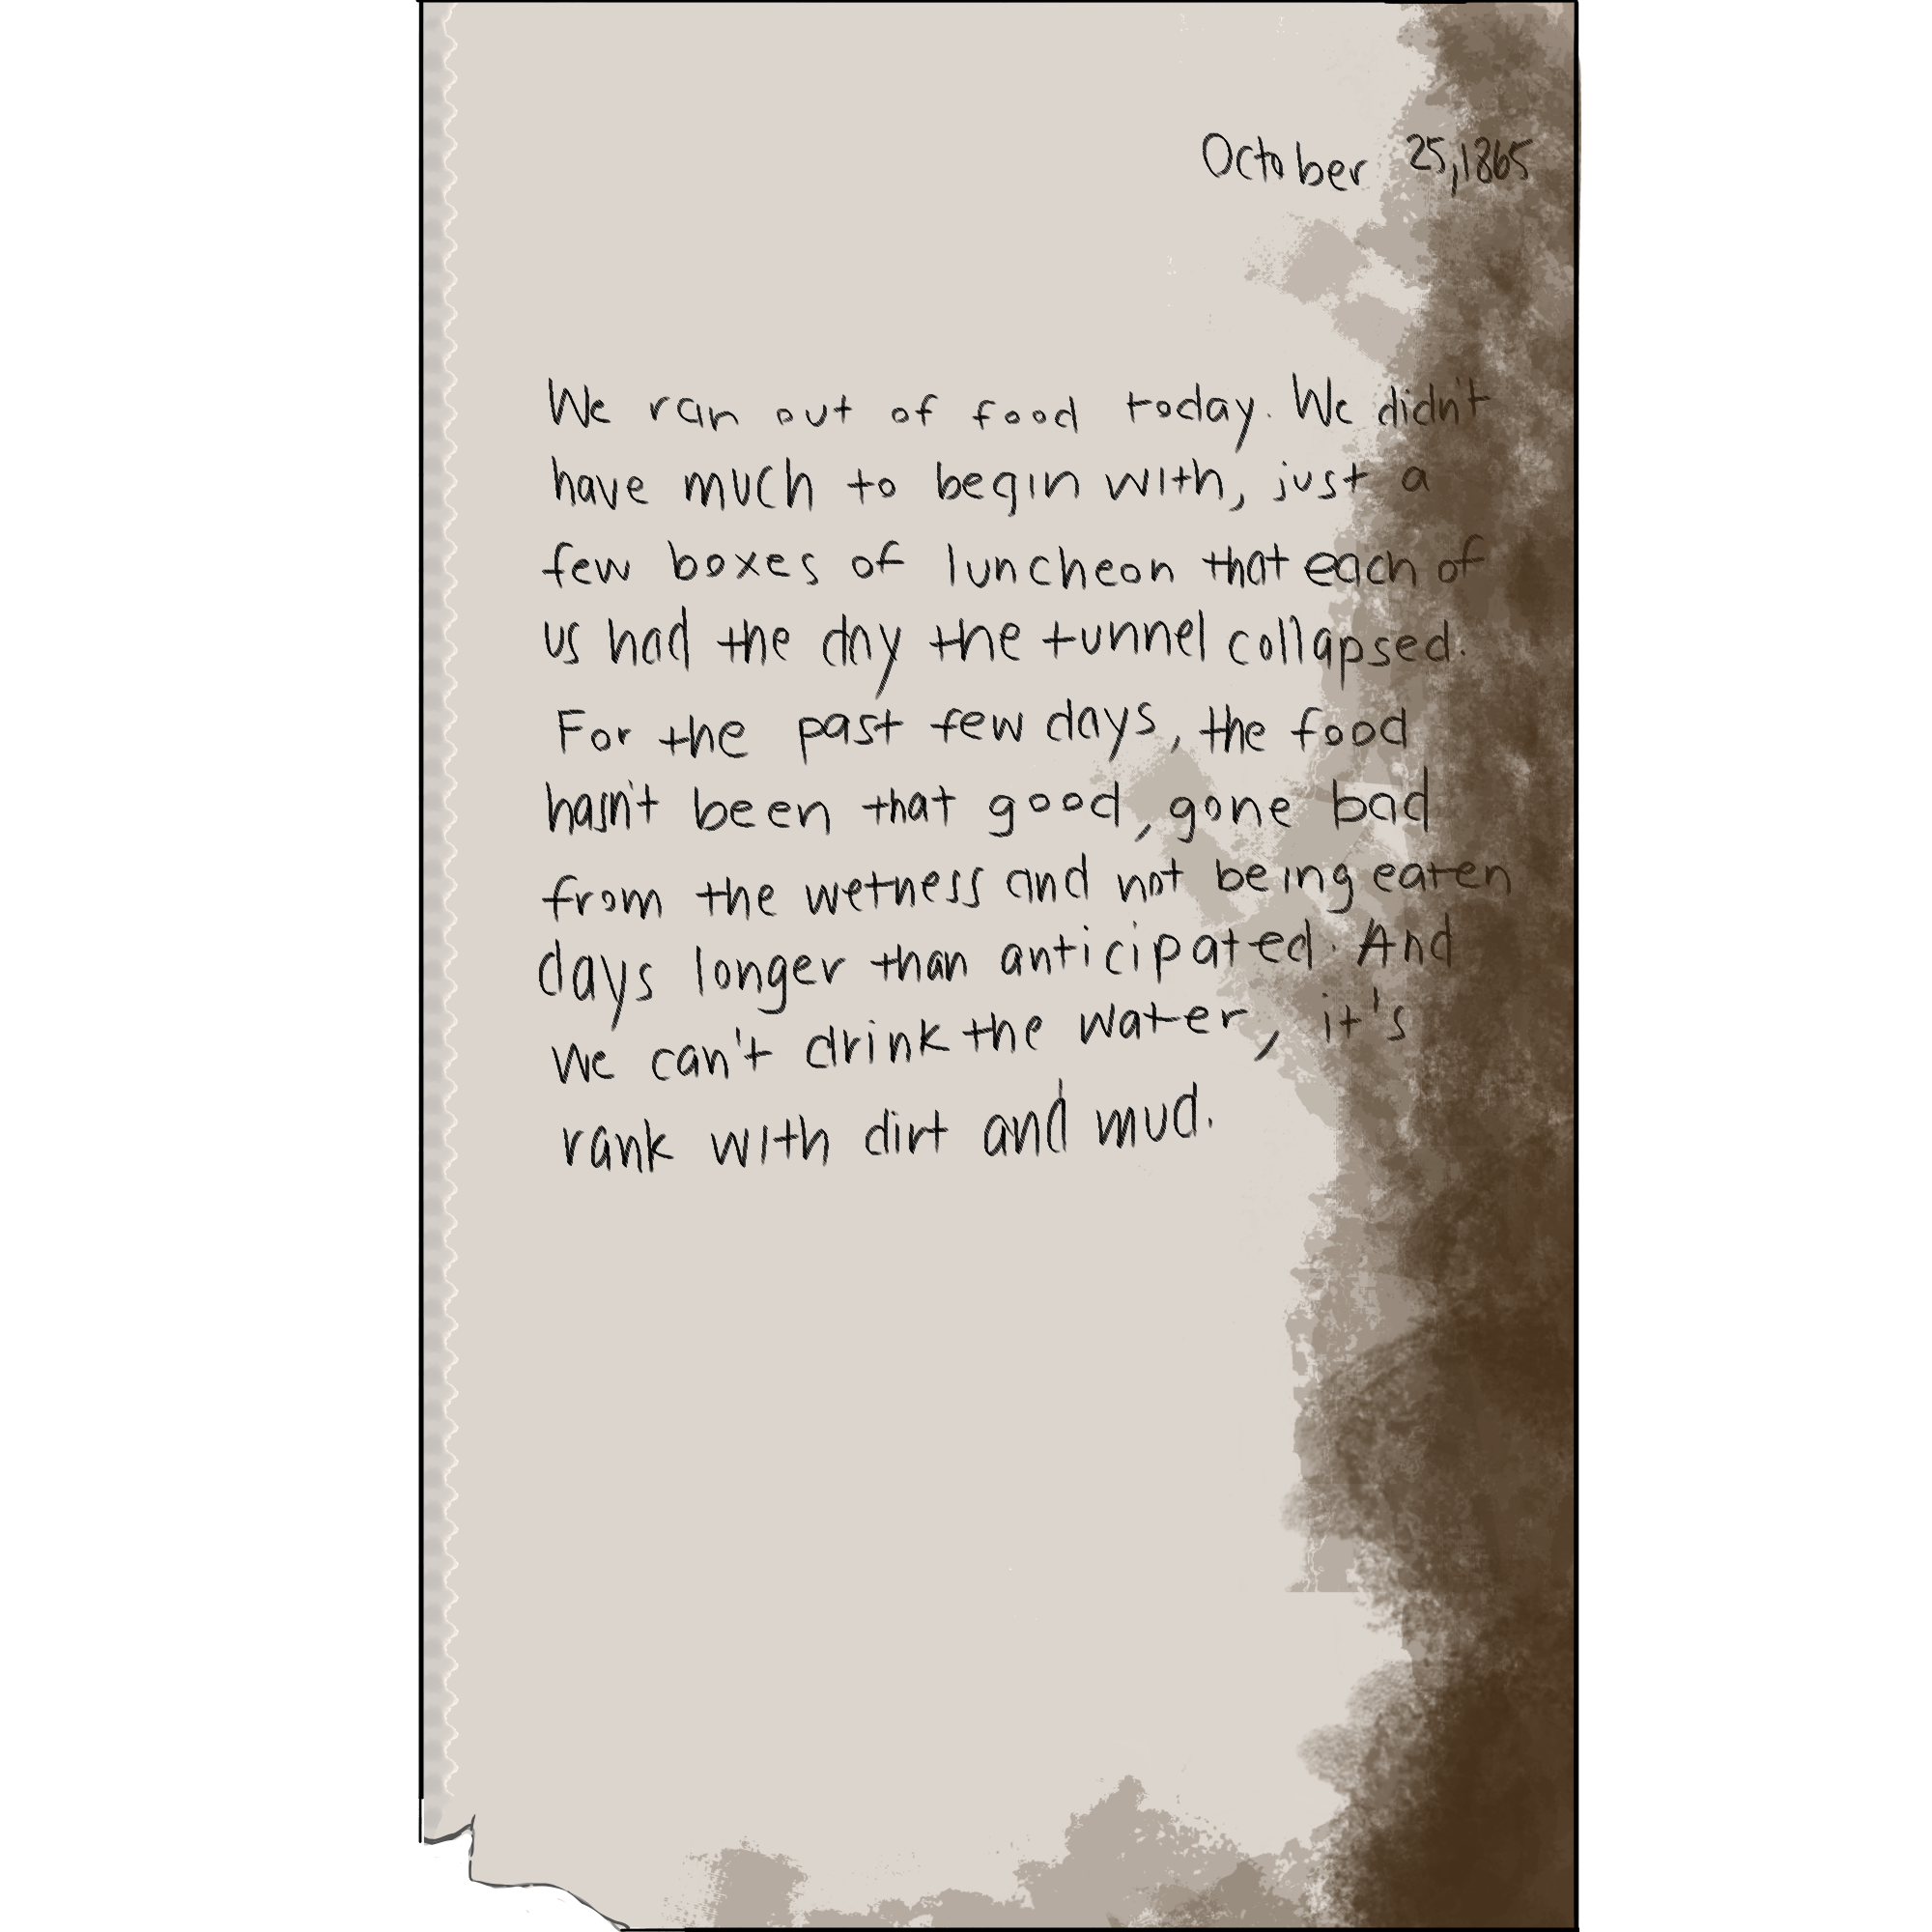 October 25, 1865
We ran out of food today. We didn't
have much to begin with, just a
few boxes of luncheon that each of
us had the day the tunnel collapsed.
For the past few days, the food
hasn't been that good, gone bad
from the wetness and not being eaten
days longer than anticipated. And
we can't drink the water, it's
rank with dirt and mud.